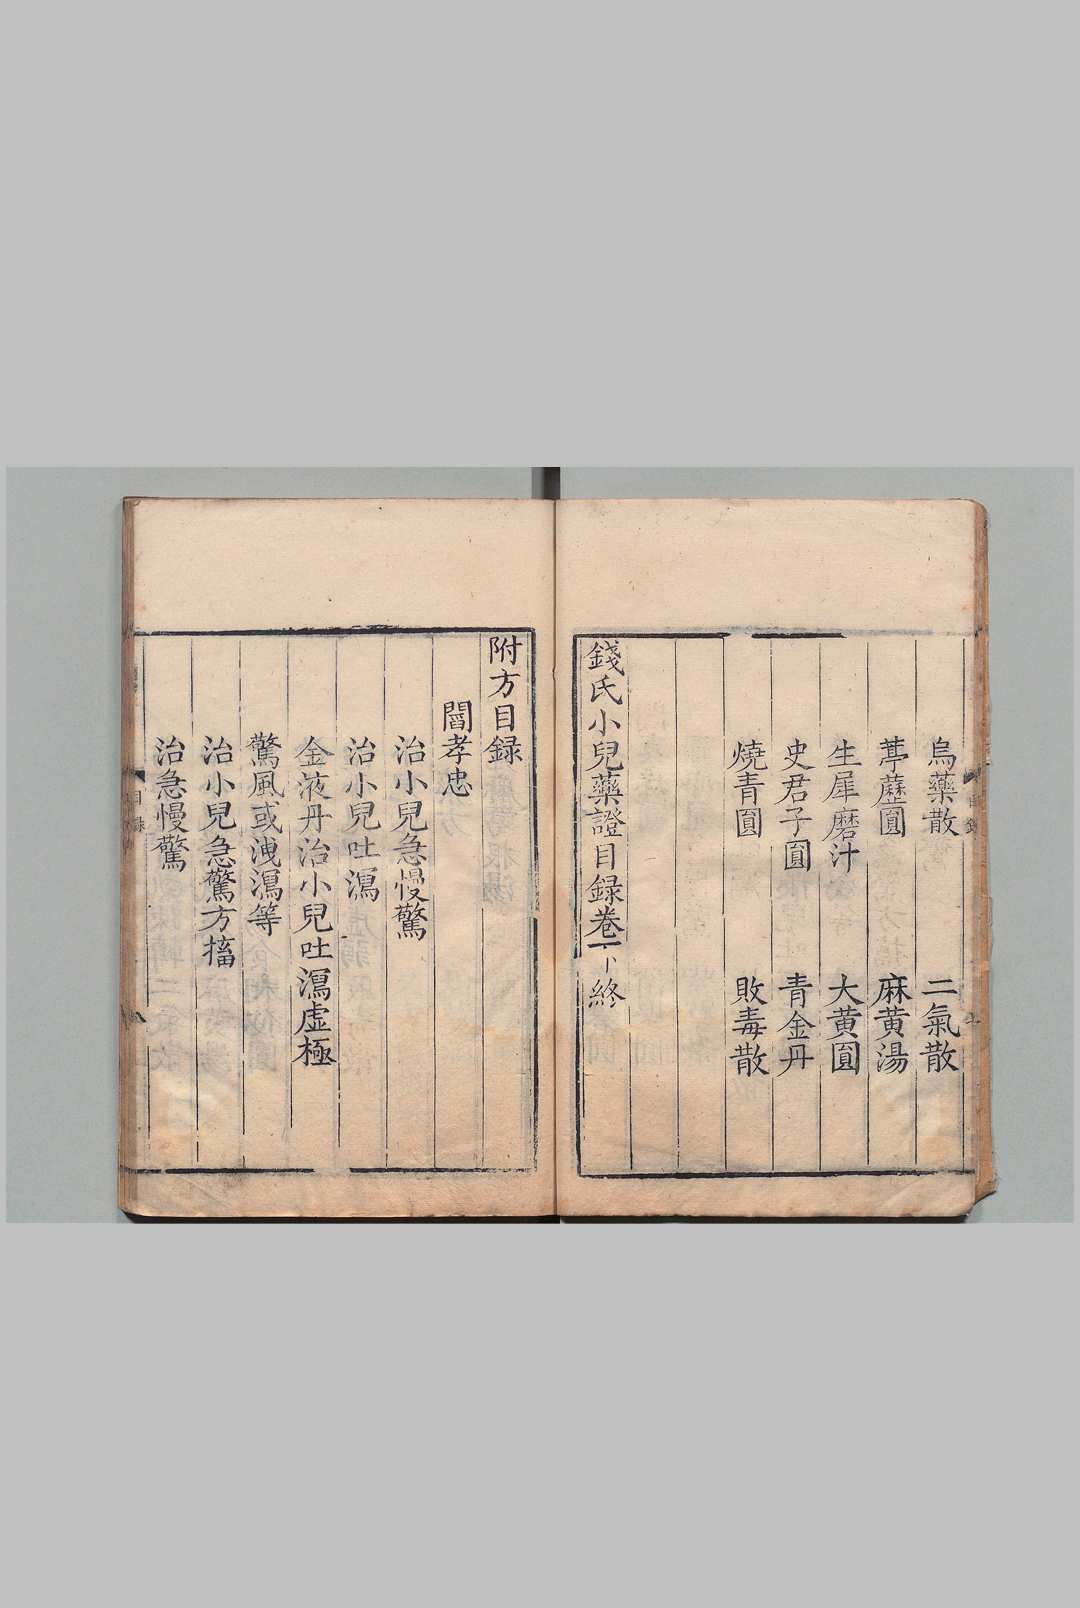 烏藥散 二氣散
葶藶圓 麻黃湯
生犀磨汁 大黃圓
史君子圓 青金丹
燒青圓 敗毒散
錢氏小兒藥證目録卷下終
附方目録
閻孝忠
治小兒急慢驚
治小兒吐瀉
金液丹治小兒吐瀉虛極
驚風或洩瀉等
治小兒急驚方搐
治急慢驚
目録